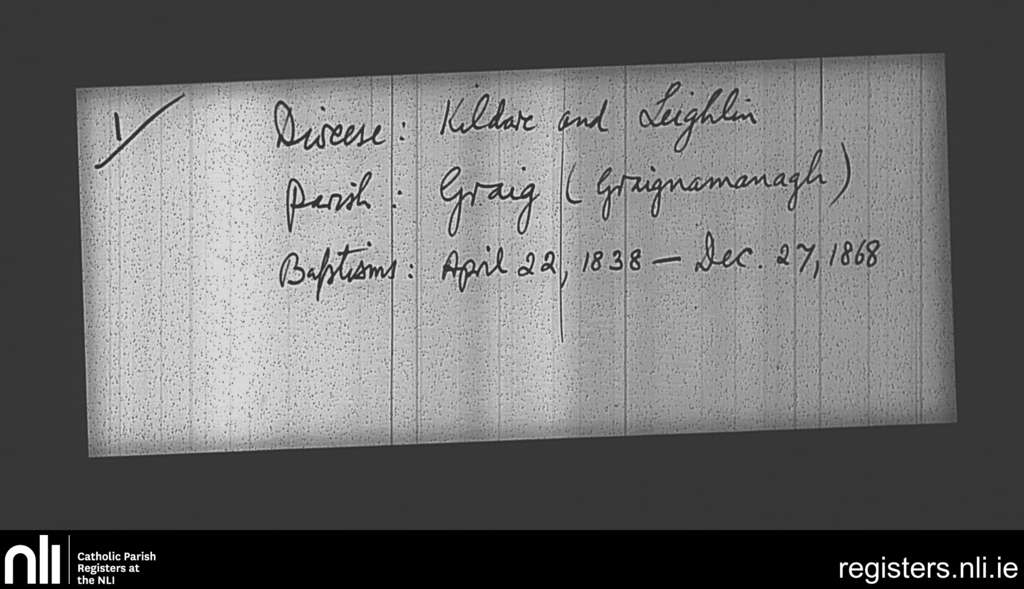 1/
Diocese: Kildare and Leighlin
Parish: Graig (Graignamanagh)
Baptisms: April 22, 1838 — Dec. 27, 1868
nli
Catholic Parish
Registers at
the NLI
registers.nli.ie